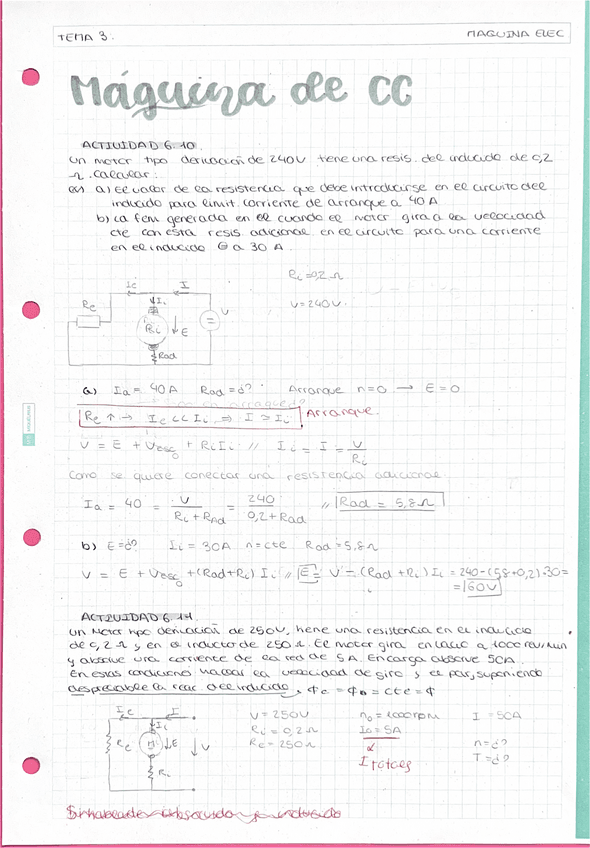 TEMA 3.
MAQUINA ELEC
Máquina de CC
ACTIVIDAD 6.10.
Un motor tipo derivación de 240V tiene una resis. del inducido de 0,2
Ω. Calcular:
a) El valor de la resistencia que debe introducirse en el circuito del
inducido para limit. corriente de arranque a 40A
b) La fem generada en él cuando el motor gira a la velocidad
cte con esta resis adicional en el circuito para una corriente
en el inducido a 30 A.
Ri = 0,2 Ω
V = 240V.
Ie
I
Re
Ii
Ri
E
V
Rad
a) Ia = 40A Rad = ¿? Arranque n=0 → E=0
Re ↑ → Ie << Ii ⇒ I ≃ Ii Arranque.
V = E + Vesc + RiIi // Ii = I = V/Ri
Como se quiere conectar una resistencia adicional
Ia = 40 = V/(Ri + RAd) = 240/(0,2 + Rad) // Rad = 5,8Ω
b) E=¿? Ii = 30A n=cte Rad=5,8Ω
V = E + Vesc + (Rad+Ri) Ii // E = V - (Rad + Ri) Ii = 240-(5,8+0,2)·30=
= 60V
ACTIVIDAD 6.11.
Un Motor tipo derivación de 250V, tiene una resistencia en el inducido
de 0,2 Ω y en el inductor de 250 Ω. El motor gira en vacío a 1000 rev/min
y absorve una corriente de la red de 5A. En carga absorve 50A.
En estas condiciones hallar la velocidad de giro y el par, suponiendo
despreciable la reac del inducido, Φc = Φo = cte = Φ
Ie
I
Re
Ii
M
E
V
Ri
V = 250V
Ri = 0,2 Ω
Re = 250Ω
no = 1000rpm
Io = 5A
I totales
I = 50A
n=¿?
T=¿?